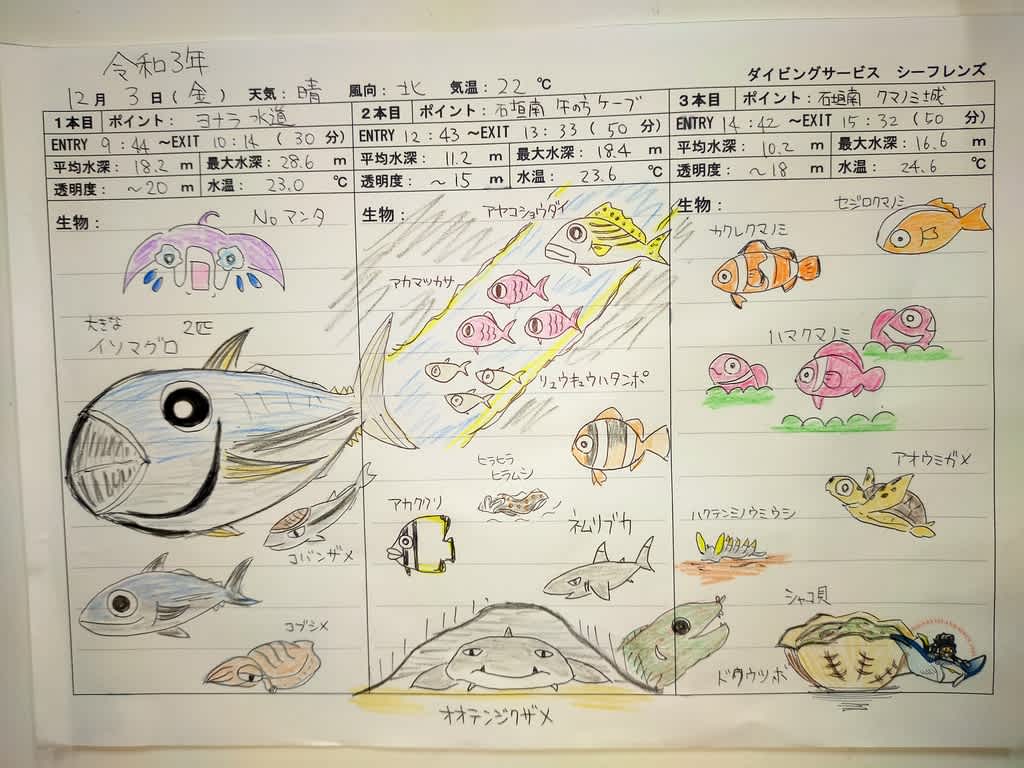 令和3年
ダイビングサービス シーフレンズ
12月 3日(金) 天気:晴 風向:北 気温:22℃
1本目 ポイント: ヨナラ水道
ENTRY 9:44 ~EXIT 10:14 (30分)
平均水深: 18.2 m 最大水深: 28.6 m
透明度: ~20 m 水温: 23.0 ℃
生物:
No マンタ
大きな 2匹
イソマグロ
コバンザメ
コブシメ
2本目 ポイント: 石垣南 ケーブ
ENTRY 12:43 ~EXIT 13:33 (50分)
平均水深: 11.2 m 最大水深: 18.4 m
透明度: ~15 m 水温: 23.6 ℃
生物:
アヤコショウダイ
アカマツカサ
リュウキュウハタンポ
ヒラヒラ
ヒラムシ
アカククリ
ネムリブカ
オオテンジクザメ
3本目 ポイント: 石垣南 クマノミ城
ENTRY 14:42 ~EXIT 15:32 (50分)
平均水深: 10.2 m 最大水深: 16.6 m
透明度: ~18 m 水温: 24.6 ℃
生物:
セジロクマノミ
カクレクマノミ
ハマクマノミ
アオウミガメ
ハクテンミノウミウシ
シャコ貝
ドクウツボ